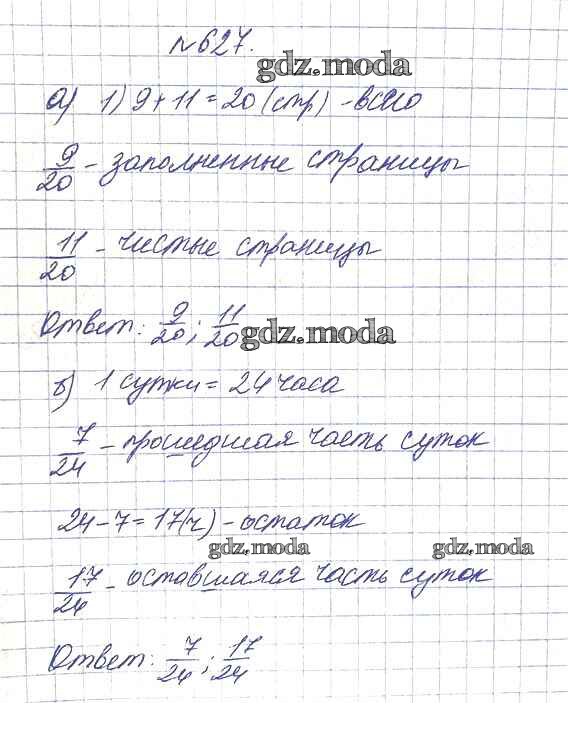 №627.
gdz.moda
а) 1) 9 + 11 = 20 (стр) - всего
9/20 - заполненные страницы
11/20 - чистые страницы
Ответ: 9/20; 11/20
gdz.moda
б) 1 сутки = 24 часа
7/24 - прошедшая часть суток
24 - 7 = 17(ч) - остаток
gdz.moda gdz.moda
17/24 - оставшаяся часть суток
Ответ: 7/24; 17/24